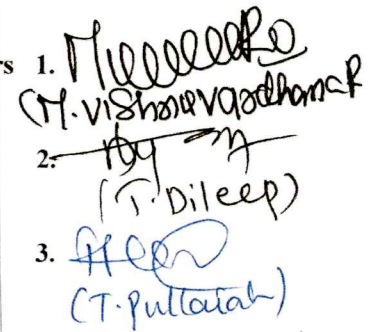 rs 1.
(M. Vishnuvardhana R
2.
(T. Dileep)
3.
(T. Pullaiah)